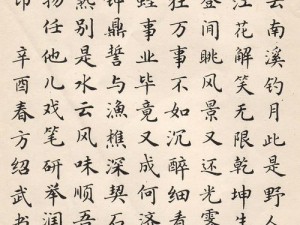 云南溪钓月此是野人
江花解笑无限乾坤生
簦间眺风景又还光霁
狂万事不如沉醉细看
蜗事业毕竟又成何济
钟鼎誓与漁樵深契石
熟别是水云风味顺吾
任他儿戏笔研举润
辛酉春方绍武书